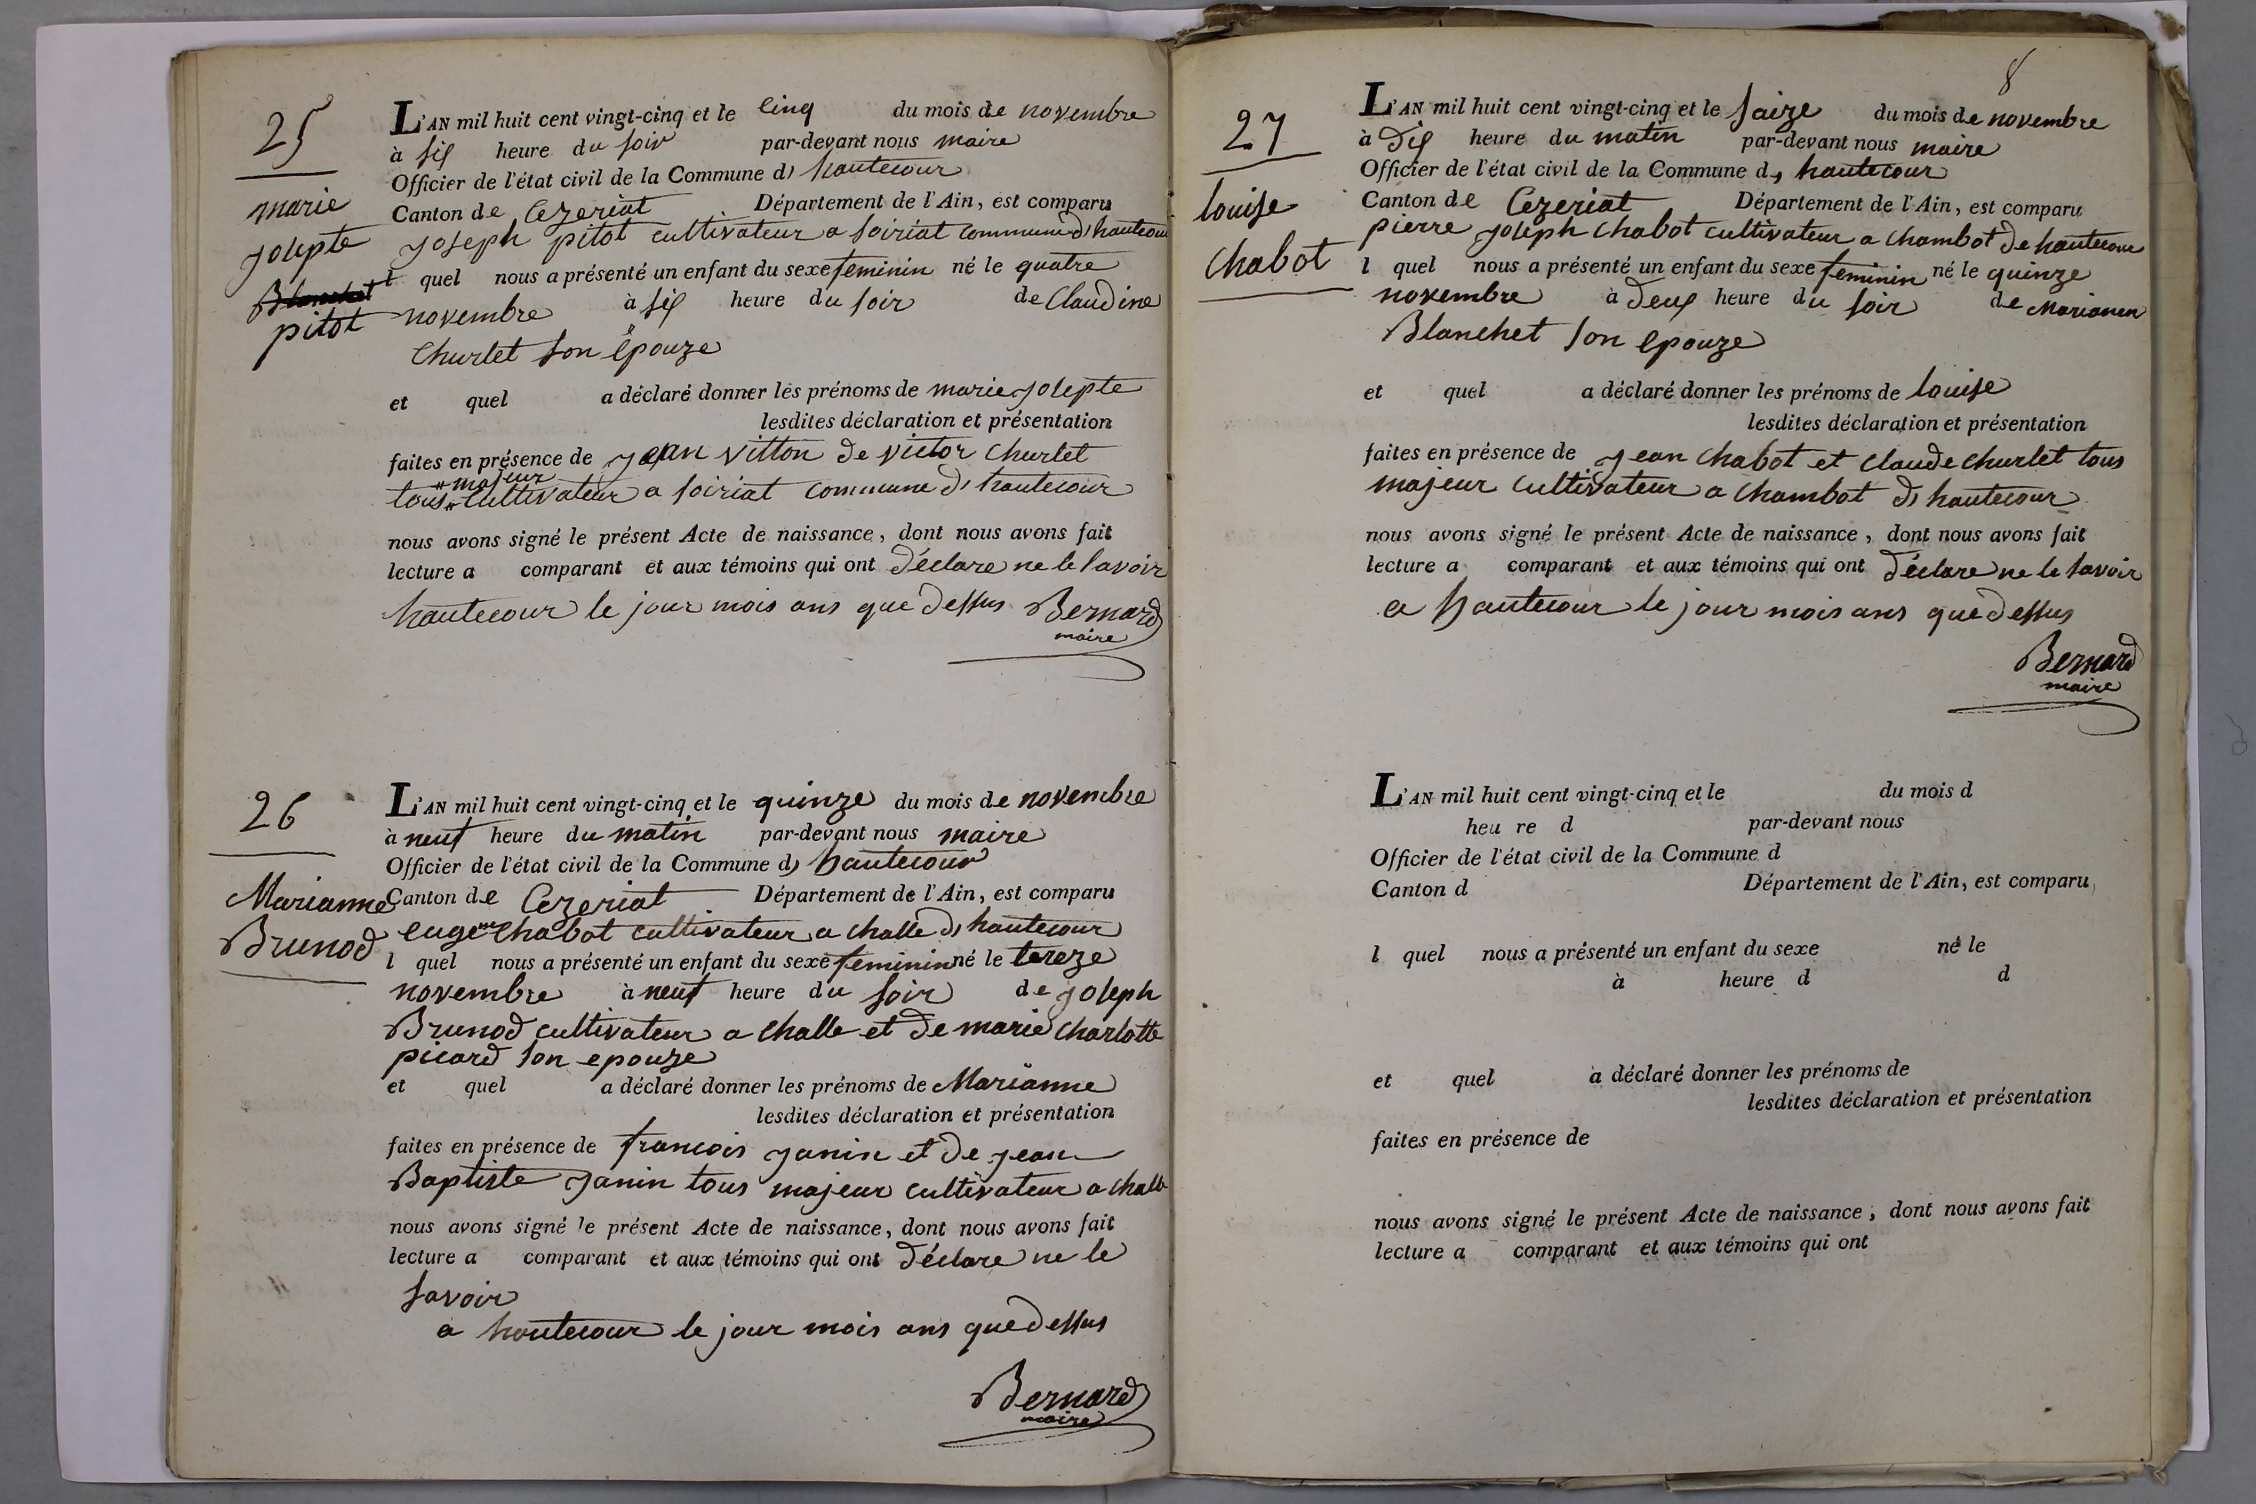 25
marie
josepte
pitot
L'AN mil huit cent vingt-cinq et le cinq du mois de novembre
à six heure du soir par-devant nous maire
Officier de l'état civil de la Commune d, hautecour
Canton de Cezeriat Département de l'Ain, est comparu
joseph pitot cultivateur a soiriat commune d, hautecour
l quel nous a présenté un enfant du sexe feminin né le quatre
novembre à six heure du soir de Claudine
Churlet son epouze
et quel a déclaré donner les prénoms de marie josepte
lesdites déclaration et présentation
faites en présence de jean vitton de victor Churlet
majeur
tous cultivateur a soiriat commune d, hautecour
nous avons signé le présent Acte de naissance, dont nous avons fait
lecture a comparant et aux témoins qui ont déclare ne le savoir
hautecour le jour mois ans que dessus Bernard
maire
26
Marianne
Brunod
L'AN mil huit cent vingt-cinq et le quinze du mois de novembre
à neuf heure du matin par-devant nous maire
Officier de l'état civil de la Commune d, hautecour
Canton de Cezeriat Département de l'Ain, est comparu
Chabot cultivateur a challe d, hautecour
l quel nous a présenté un enfant du sexe feminin né le tereze
novembre à neuf heure du soir de joseph
Brunod cultivateur a challe et de marie charlotte
picard son epouze
et quel a déclaré donner les prénoms de Marianne
lesdites déclaration et présentation
faites en présence de francois janin et de jean
Baptiste janin tous majeur cultivateur a challe
nous avons signé le présent Acte de naissance, dont nous avons fait
lecture a comparant et aux témoins qui ont déclare ne le
savoir
a hautecour le jour mois ans que dessus
Bernard
maire
8
27
louise
Chabot
L'AN mil huit cent vingt-cinq et le saize du mois de novembre
à dix heure du matin par-devant nous maire
Officier de l'état civil de la Commune d, hautecour
Canton de Cezeriat Département de l'Ain, est comparu
pierre joseph Chabot cultivateur a Chambot de hautecour
l quel nous a présenté un enfant du sexe feminin né le quinze
novembre à deux heure du soir de
Blanchet son epouze
et quel a déclaré donner les prénoms de louise
lesdites déclaration et présentation
faites en présence de jean Chabot et claude churlet tous
majeur cultivateur a Chambot d, hautecour
nous avons signé le présent Acte de naissance, dont nous avons fait
lecture a comparant et aux témoins qui ont déclare ne le savoir
a hautecour le jour mois ans que dessus
Bernard
maire
L'AN mil huit cent vingt-cinq et le du mois d
heu re d par-devant nous
Officier de l'état civil de la Commune d
Canton d Département de l'Ain, est comparu
l quel nous a présenté un enfant du sexe né le
à heure d d
et quel a déclaré donner les prénoms de
lesdites déclaration et présentation
faites en présence de
nous avons signé le présent Acte de naissance, dont nous avons fait
lecture a comparant et aux témoins qui ont